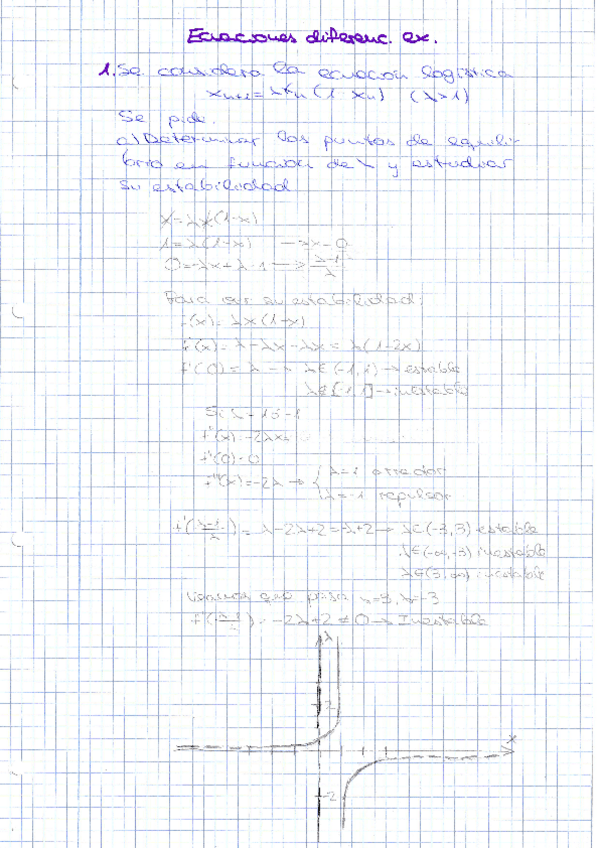 Ecuaciones diferenc. ex.
1. Se considera la ecuación logística
x_{n+1} = λx_n (1 - x_n) (λ>1)
Se pide:
a) Determinar los puntos de equili-
brio en función de λ y estudiar
su estabilidad
x = λx(1-x)
1 = λ(1-x) → x=0
0 = -λx + λ - 1 → \frac{λ-1}{λ}
Para ver su estabilidad:
f(x) = λx(1-x)
f'(x) = λ - λx - λx = λ(1-2x)
f'(0) = λ → λ∈(-1,1) → estable
λ∉[-1,1] → inestable
Si λ = 1 ó -1
f'(0) = 0
f''(x) = -2λ → { λ=1 atractor
λ=-1 repulsor
f'(\frac{λ-1}{λ}) = λ - 2λ + 2 = -λ + 2 → λ∈(-3,3) estable
λ∈(-∞,-3) inestable
λ∈(3,∞) inestable
Veamos que pasa λ=3, λ=-3
f'(\frac{λ-1}{λ}) = -2λ + 2 ≠ 0 → Inestable
λ
2
x
-2